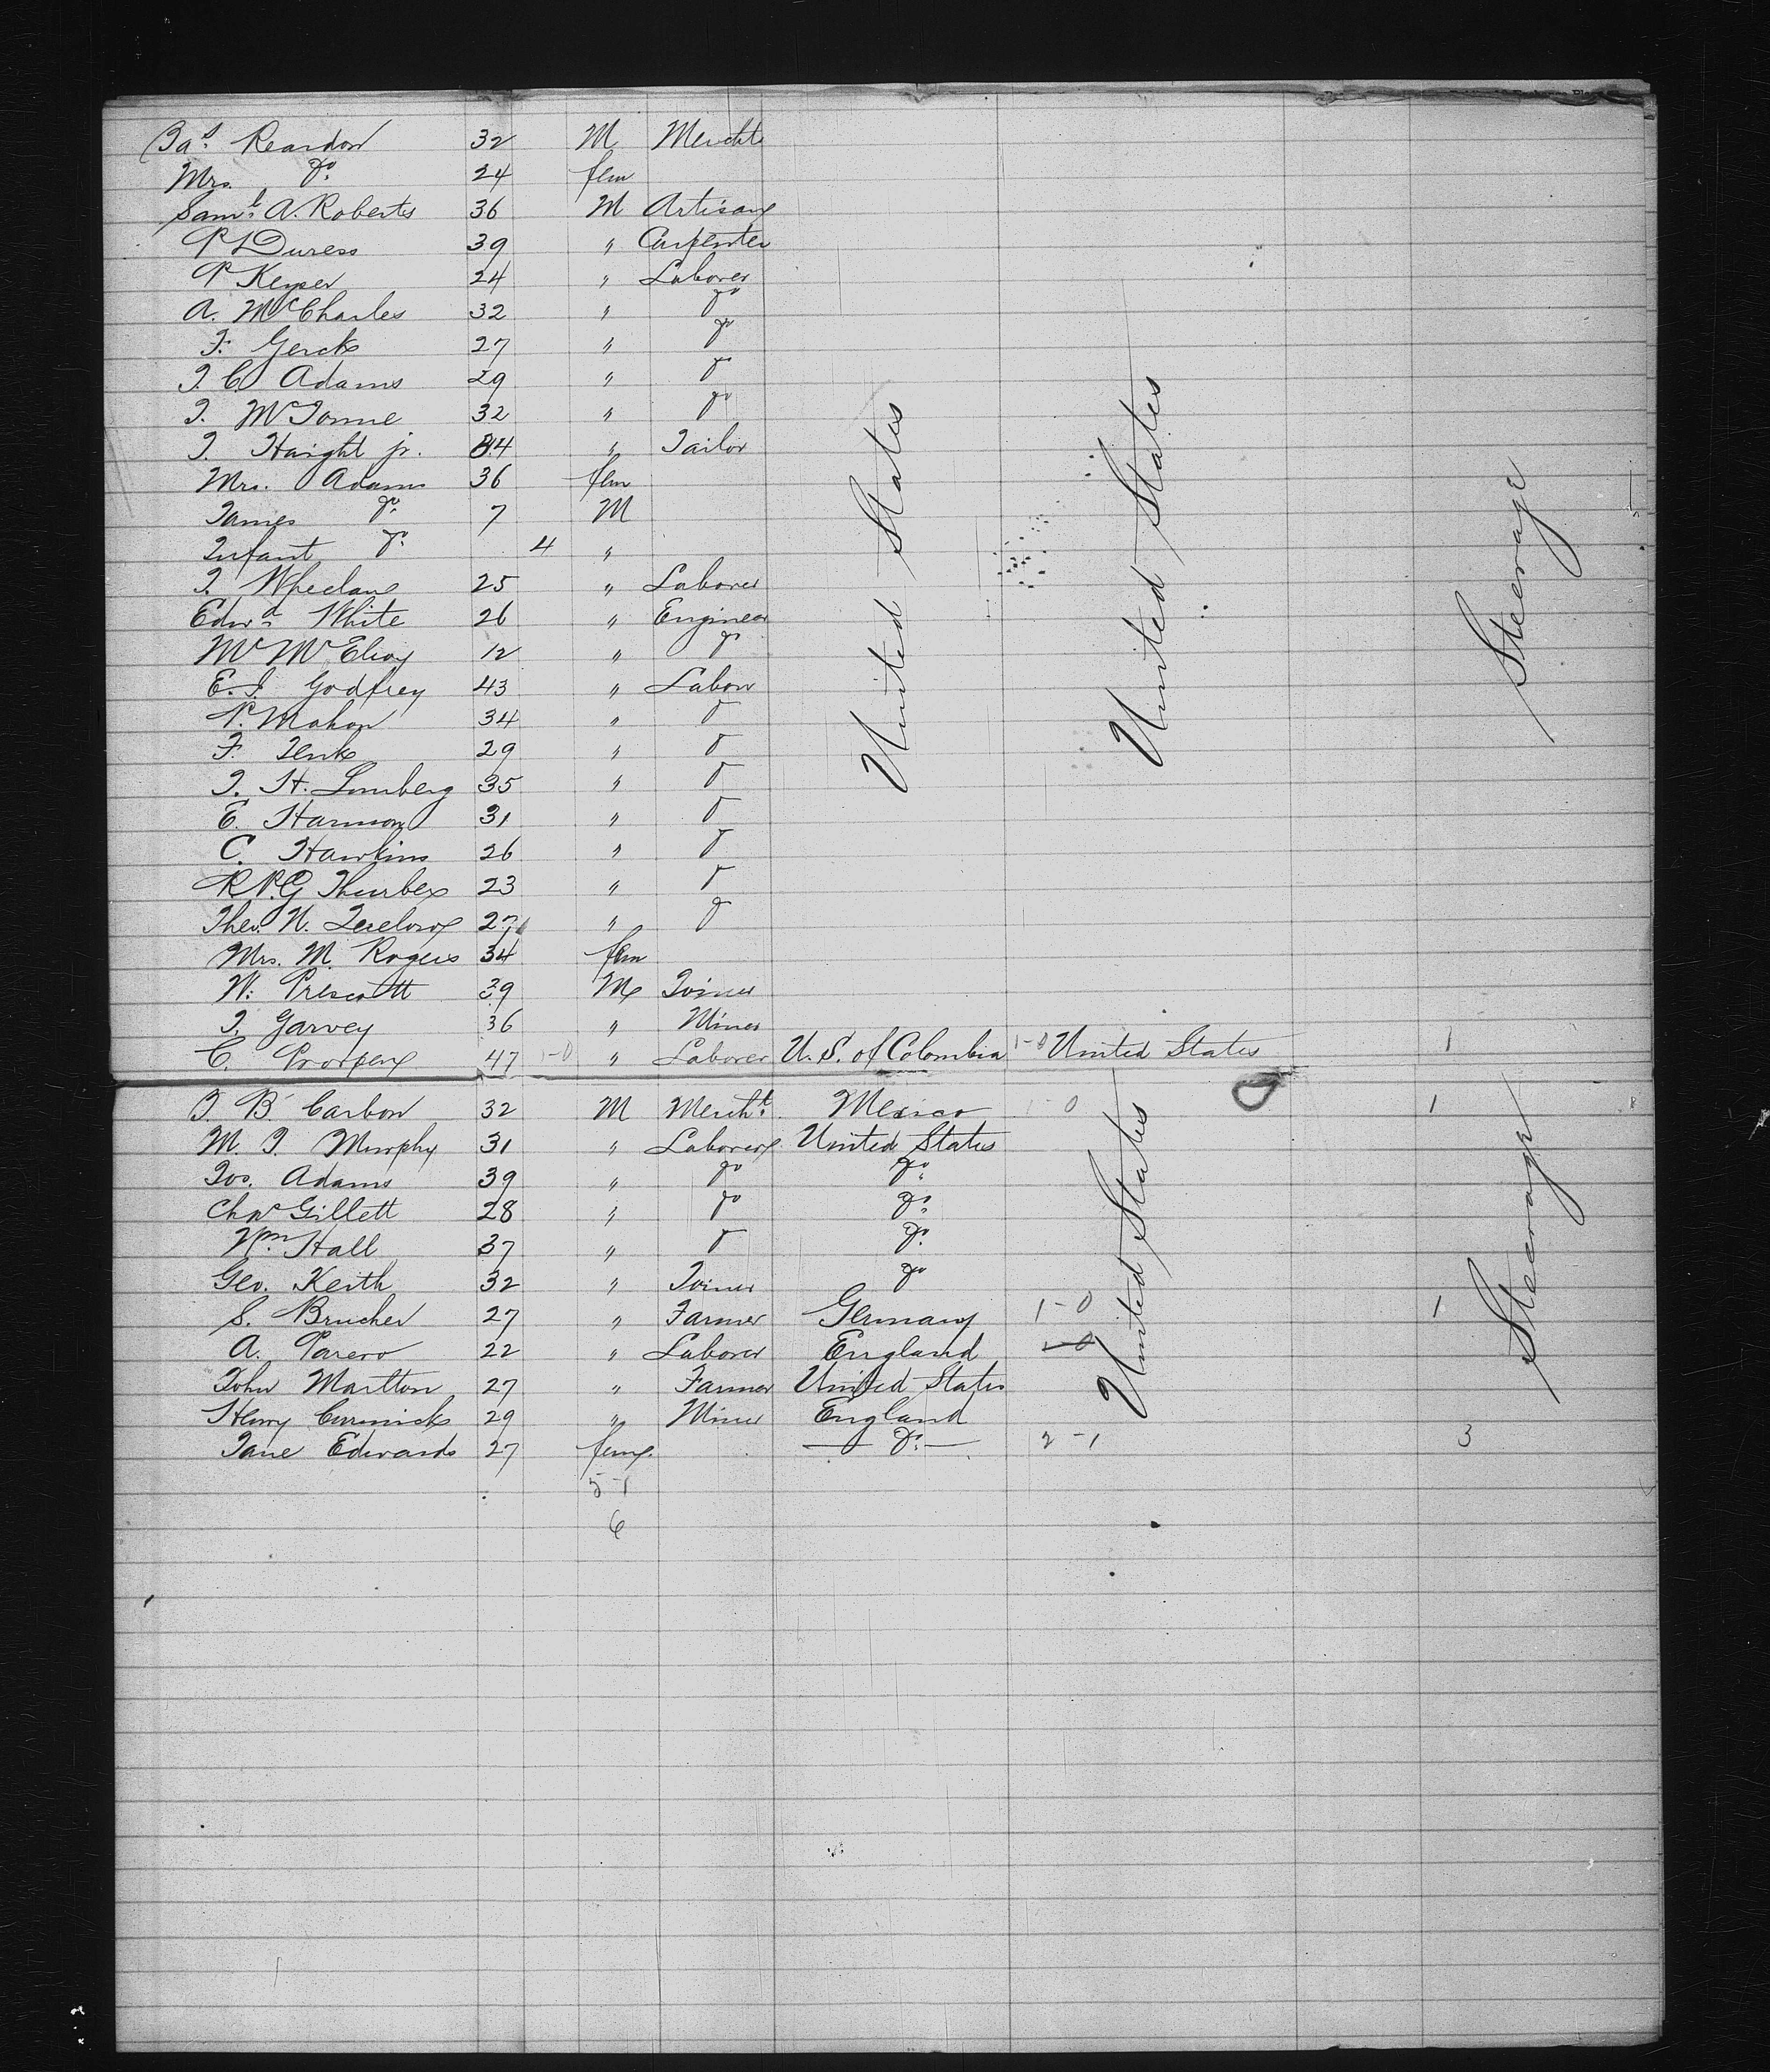 Jas. Reardon 32 M Mercht
Mrs. Do. 24 fem
Saml. A. Roberts 36 M Artisan
P Duress 39 " Carpenter
P Keyser 24 " Laborer
A. McCharles 32 " do
F. Gerck 27 " do
J. C. Adams 29 " do
J. 32 " do
J. Haight jr. 34 " Tailor
Mrs. Adams 36 fem
James Do. 7 M
Infant Do. 4 "
J. Whelan 25 " Laborer
Edwd. White 26 " Engineer
Mc McElroy 12 " do
E. J. Godfrey 43 " Labor
P. Mahon 34 " do
F. Jenk 29 " do
J. H. 35 " do
E. Harmon 31 " do
C. Hawkins 26 " do
R.P.G Thurber 23 " do
Theo. N. 27 " do
Mrs. M. Rogers 34 fem
W. Prescott 39 M Joiner
J. Garvey 36 " Miner
United States
United States
Steerage
C. 47 1-0 " Laborer U. S. of Colombia 1-0 United States 1
J. B. Carbon 32 M Mercht. Mexico 1-0 1
M. J. Murphy 31 " Laborer United States
Jos. Adams 39 " do do.
Chas Gillett 28 " do do.
Wm. Hall 37 " do do.
Geo. Keith 32 " Joiner do
S. Brucher 27 " Farmer Germany 1-0 1
A. Parero 22 " Laborer England 1-0
John Martton 27 " Farmer United States
Henry Curnick 29 " Miner England
Jane Edwards 27 fem. — Do. — 2-1 3
United States
Steerage
5-1
6